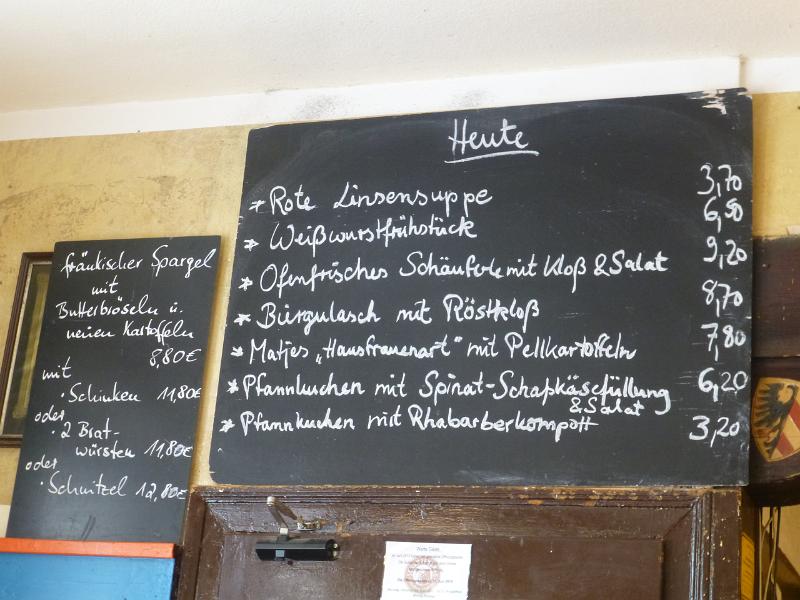 Heute
* Rote Linsensuppe 3,70
* Weißwurstfrühstück 6,50
* Ofenfrisches Schäuferle mit Kloß & Salat 9,20
* Biergulasch mit Röstkloß 8,70
* Matjes „Hausfrauenart“ mit Pellkartoffeln 7,80
* Pfannkuchen mit Spinat-Schafskäsefüllung 6,20
& Salat
* Pfannkuchen mit Rhabarberkompott 3,20
fränkischer Spargel
mit
Butterbröseln u.
neuen Kartoffeln
8,80€
mit
· Schinken 11,80€
oder
· 2 Brat-
würsten 11,80€
oder
· Schnitzel 12,80€